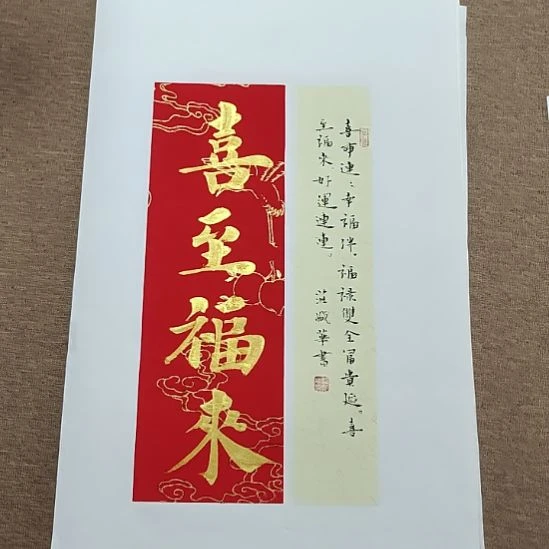 喜至福來
喜事連連幸福伴，福祿雙全富貴延。喜
至福來好運連連。
華書